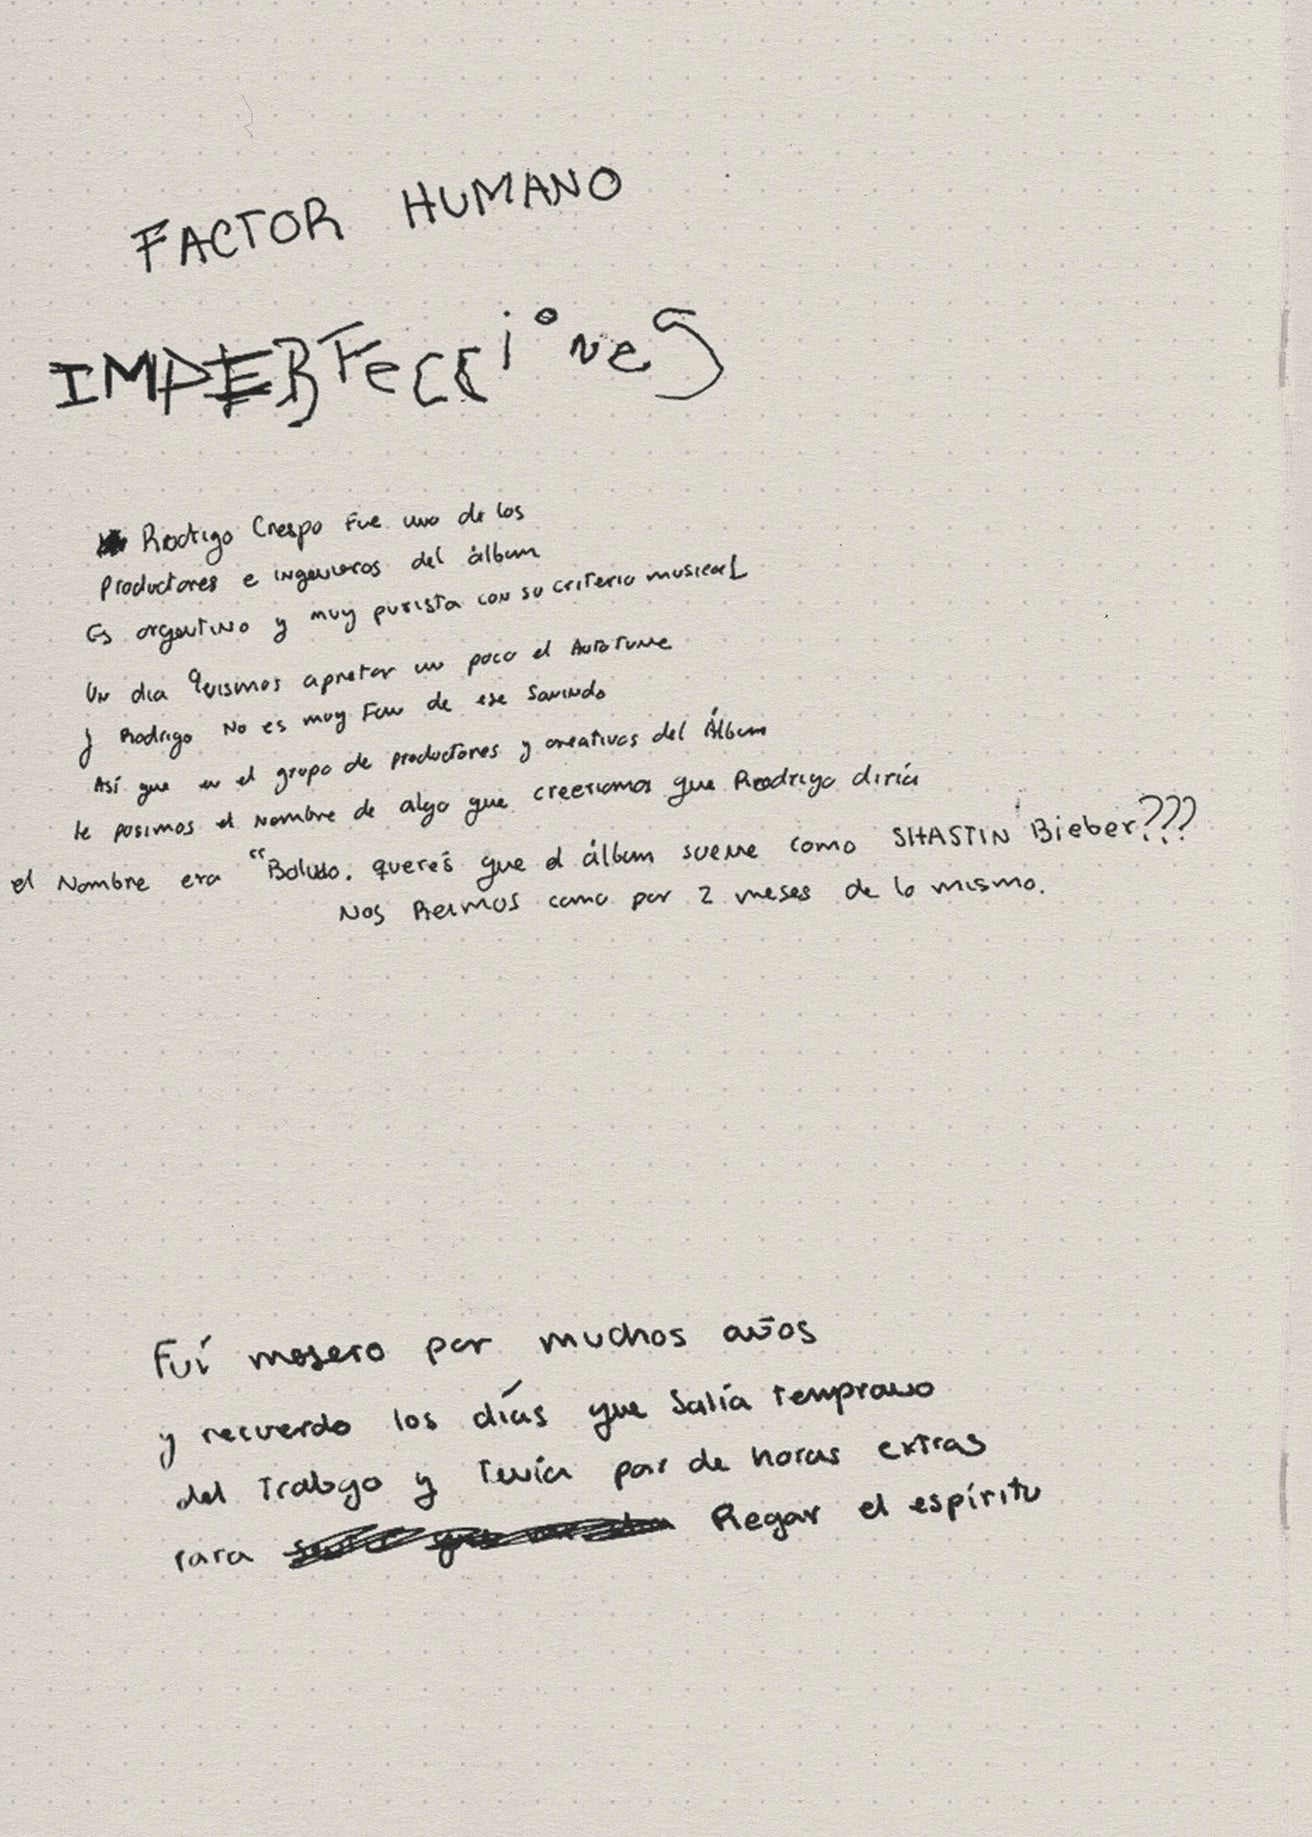 FACTOR HUMANO
IMPERFecciones
Rodrigo Crespo fue uno de los
Productores e ingenieros del álbum
Es argentino y muy purista con su criterio musical
Un dia quisimos apretar un poco el Autotune
y Rodrigo No es muy Fan de ese Sonindo
Así que en el grupo de productores y creativos del Álbum
le pusimos el nombre de algo que creeriamos que Rodrigo diría
el Nombre era "Boludo. querés que el álbum suene como SHASTIN Bieber???
Nos Reimos como por 2 meses de lo mismo.
Fuí mesero por muchos años
y recuerdo los días que Salía temprano
del Trabajo y Tenía par de horas extras
para Regar el espíritu